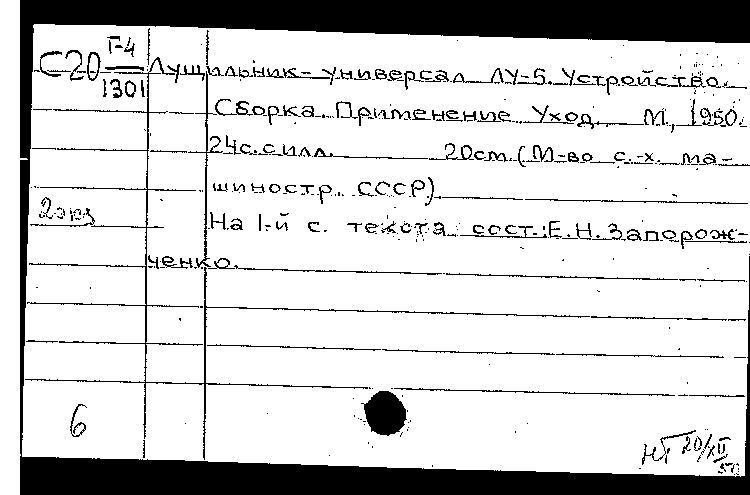 С20 Г-4
1301
Лущильник-универсал ЛУ-5. Устройство.
Сборка. Применение Уход. М., 1950.
24с.силл. 20см.(М-во с.-х. ма-
шиностр. СССР)
2экз
На 1-й с. текста сост.: Е.Н.Запорож-
ченко.
6
20/XII
50